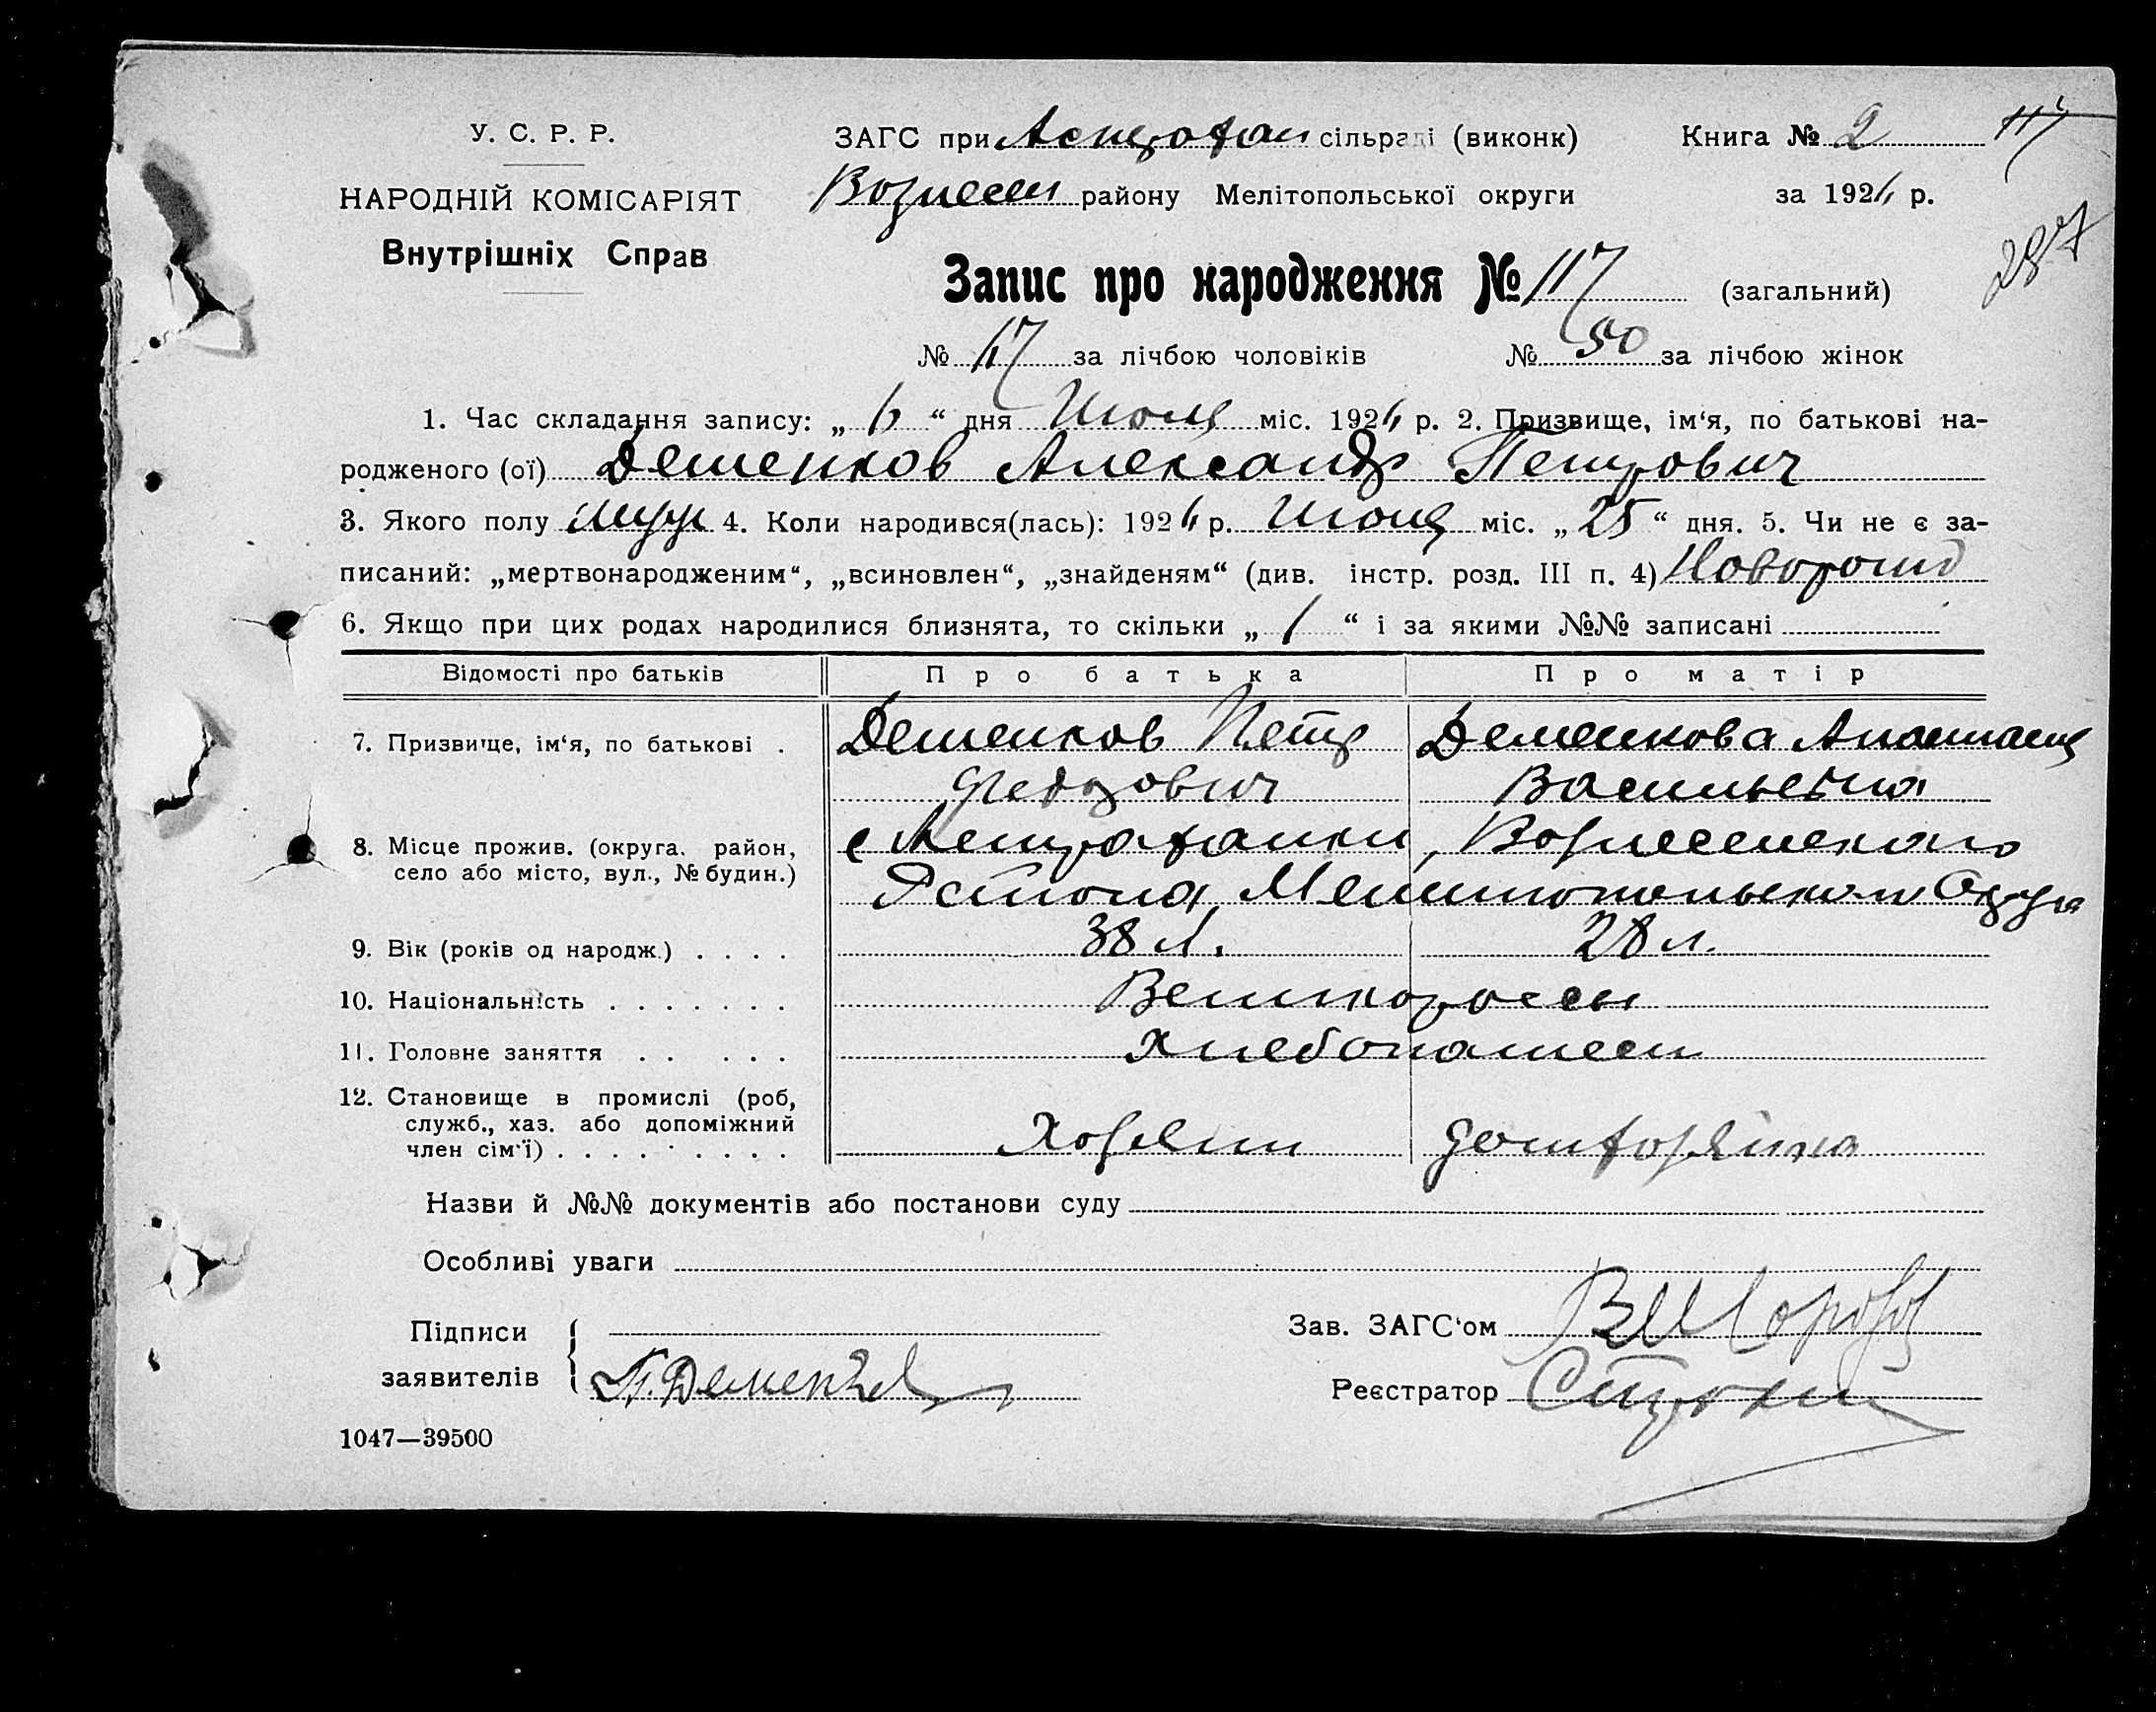 У. С. Р. Р.
НАРОДНІЙ КОМІСАРІЯТ
Внутрішніх Справ
ЗАГС при Астрахан сільраді (виконк)
Вознесен району Мелітопольської округи
Книга № 2
117
за 1926 р.
287
Запис про народження № 117 (загальний)
№ 67 за лічбою чоловіків № 50 за лічбою жінок
1. Час складання запису: „ 6 “ дня Июля міс. 1926 р. 2. Призвище, ім‘я, по батькові на-
родженого (ої) Деменков Александр Петрович
3. Якого полу муж 4. Коли народився(лась): 1926 р. міс. „ 25 “ дня. 5. Чи не є за-
писаний: „мертвонародженим“, „всиновлен“, „знайденям“ (див. інстр. розд. III п. 4) Новорожд
6. Якщо при цих родах народилися близнята, то скільки „ 1 “ і за якими №№ записані
Відомості про батьків Про батька Про матір
7. Призвище, ім‘я, по батькові . Деменков Петр Деменкова Анастасия
Федорович Васильевна
8. Місце прожив. (округа. район, с Астраханки, Вознесенского
село або місто, вул., № будин.) Района Мелитопольского Округа
9. Вік (років од народж.) . . . . 38 л. 28 л.
10. Національність . . . . . . . Великороссы
11. Головне заняття . . . . . Хлебопашеси
12. Становище в промислі (роб,
служб., хаз. або допоміжний
член сім‘ї) . . . . . . . . . Хозяин домхозяйка
Назви й №№ документів або постанови суду
Особливі уваги
Підписи
заявителів П. Деменков
Зав. ЗАГС‘ом
Реєстратор
1047—39500